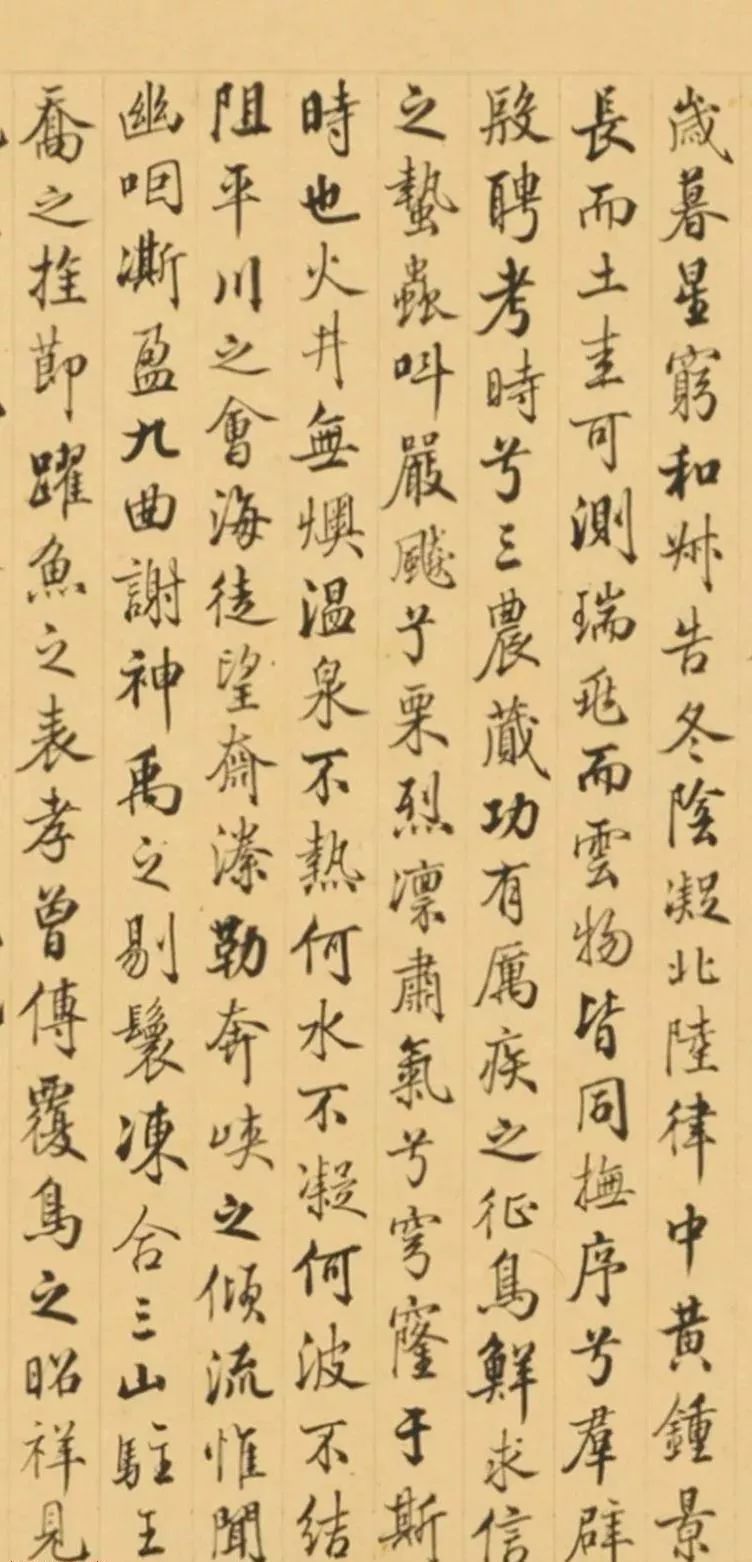 歲暮星窮和叔告冬陰凝北陸律中黃鍾景
長而土圭可測瑞飛而雲物皆同撫序兮羣辟
殷聘考時兮三農蔵功有厲疾之征鳥鮮求信
之蟄蟲叫嚴飈兮栗烈凛肅氣兮穹窿于斯
時也火井無燠温泉不熱何水不凝何波不結
阻平川之會海徒望齊漆勒奔峽之傾流惟聞
幽咽澌盈九曲謝神禹之剔鬟凍合三山駐王
喬之拴節躍魚之表孝曾傳覆鳥之昭祥見